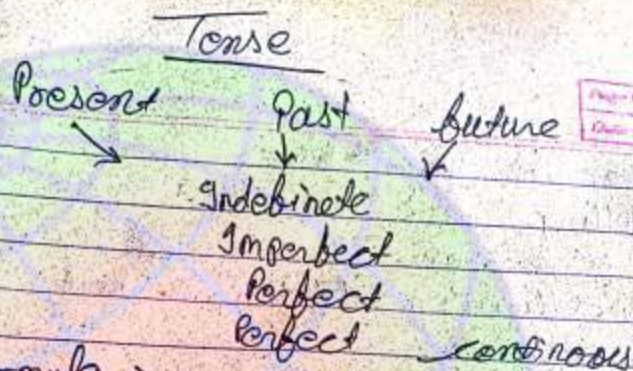 Tense
Present Past future
Indefinete
Imperfect
Perfect
Perfect continoous